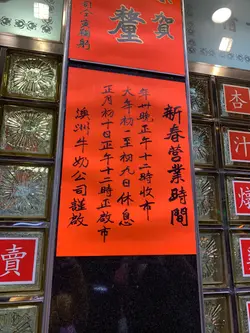 賀
釐
新春營業時間
年卅晚正午十二時收市
大年初一至初九日休息
正月初十日正午十二時正啟市
澳洲牛奶公司謹啟
杏
汁
燉
賣